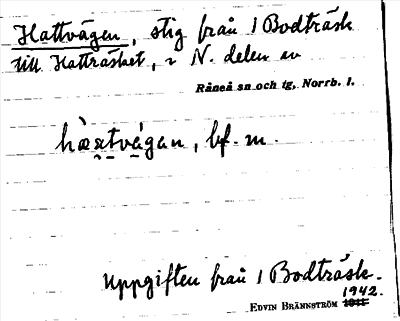 Hattvägen, stig från 1 Bodträsk
till Hatträsket, i N. delen av
Råneå sn och tg, Norrb. l.
hàtvä̀gan, bf. m.
Uppgiften från 1 Bodträsk.
1942.
EDVIN BRÄNNSTRÖM 1941